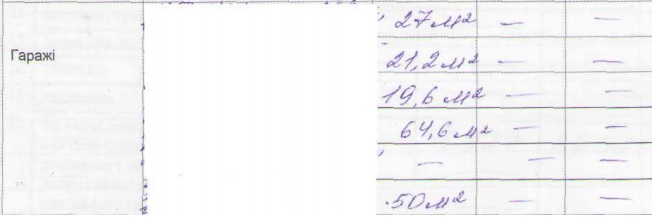 27 м² — —
Гаражі
21,2 м² — —
19,6 м² — —
64,6 м² — —
— — —
50 м² — —